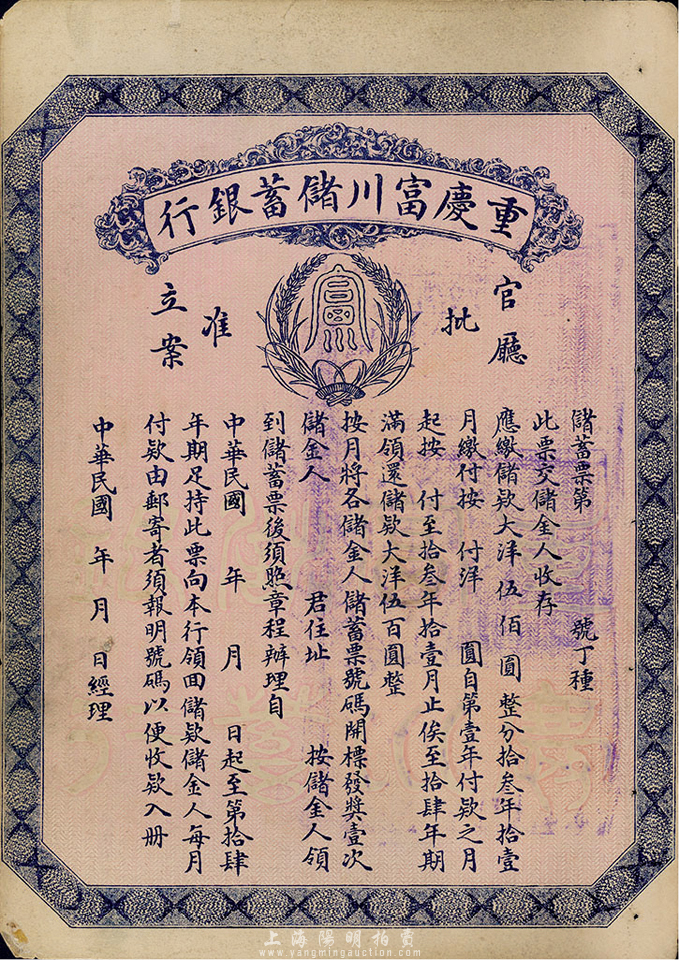 重慶富川儲蓄銀行
官廳
批
准
立案
富
儲蓄票第 號丁種
此票交儲金人收存
應繳儲款大洋伍佰圓整分拾叁年拾壹
月繳付按 付洋 圓自第壹年付款之月
起按 付至拾叁年拾壹月止俟至拾肆年期
滿領還儲款大洋伍百圓整
按月將各儲金人儲蓄票號碼開標發獎壹次
儲金人 君住址 按儲金人領
到儲蓄票後須照章程辦理自
中華民國 年 月 日起至第拾肆
年期足持此票向本行領回儲款儲金人每月
付款由郵寄者須報明號碼以便收款入册
中華民國 年 月 日經理
上海陽明拍賣
www.yangmingauction.com